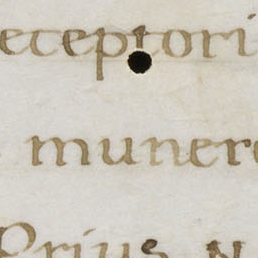 eceptori
munere
Prius N